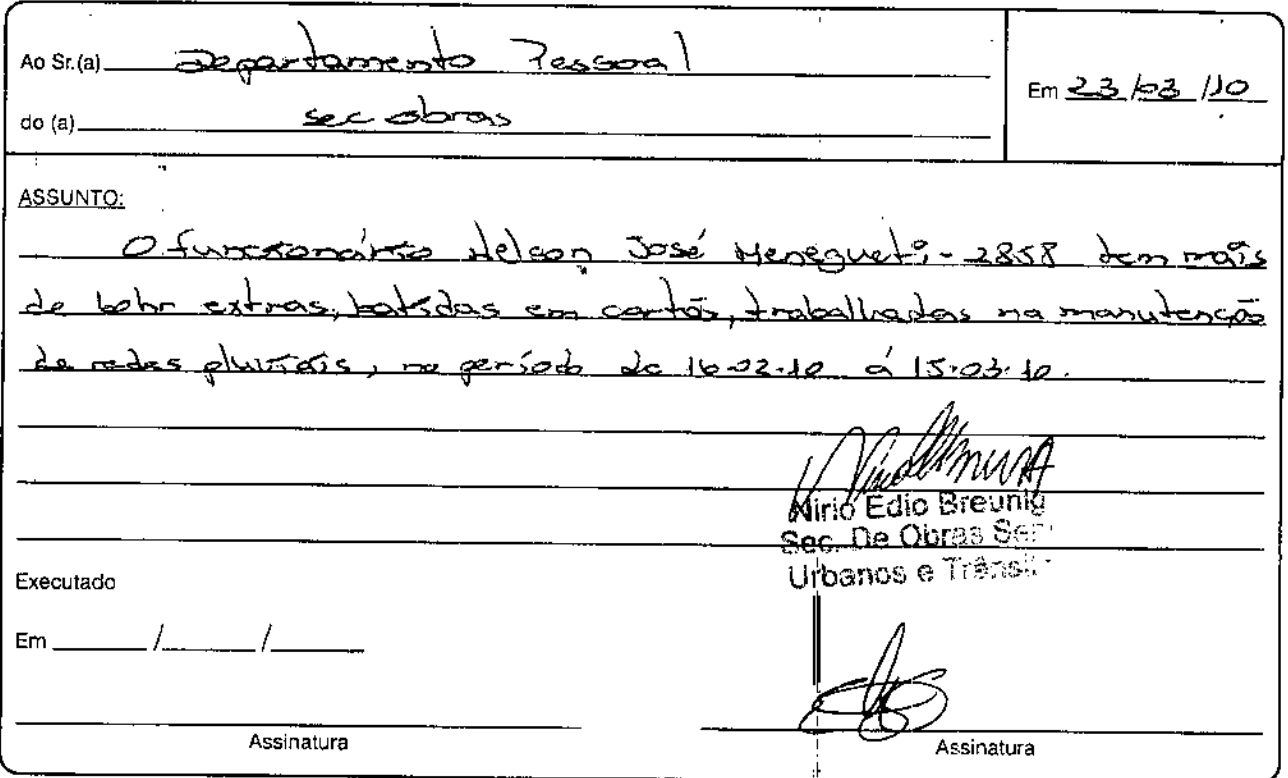 Ao Sr.(a) Departamento Pessoal
Em 23/03/10
do (a) sec obras
ASSUNTO:
O funcionário Nelson José Menegueti - 2858 tem mais
de 60hr extras, batidas em cartão, trabalhadas na manutenção
de redes pluviais, no período de 16-02-10 á 15-03-10.
Nirio Edio Breunig
Sec. De Obras Ser
Urbanos e Trânsit
Executado
Em / /
Assinatura
Assinatura